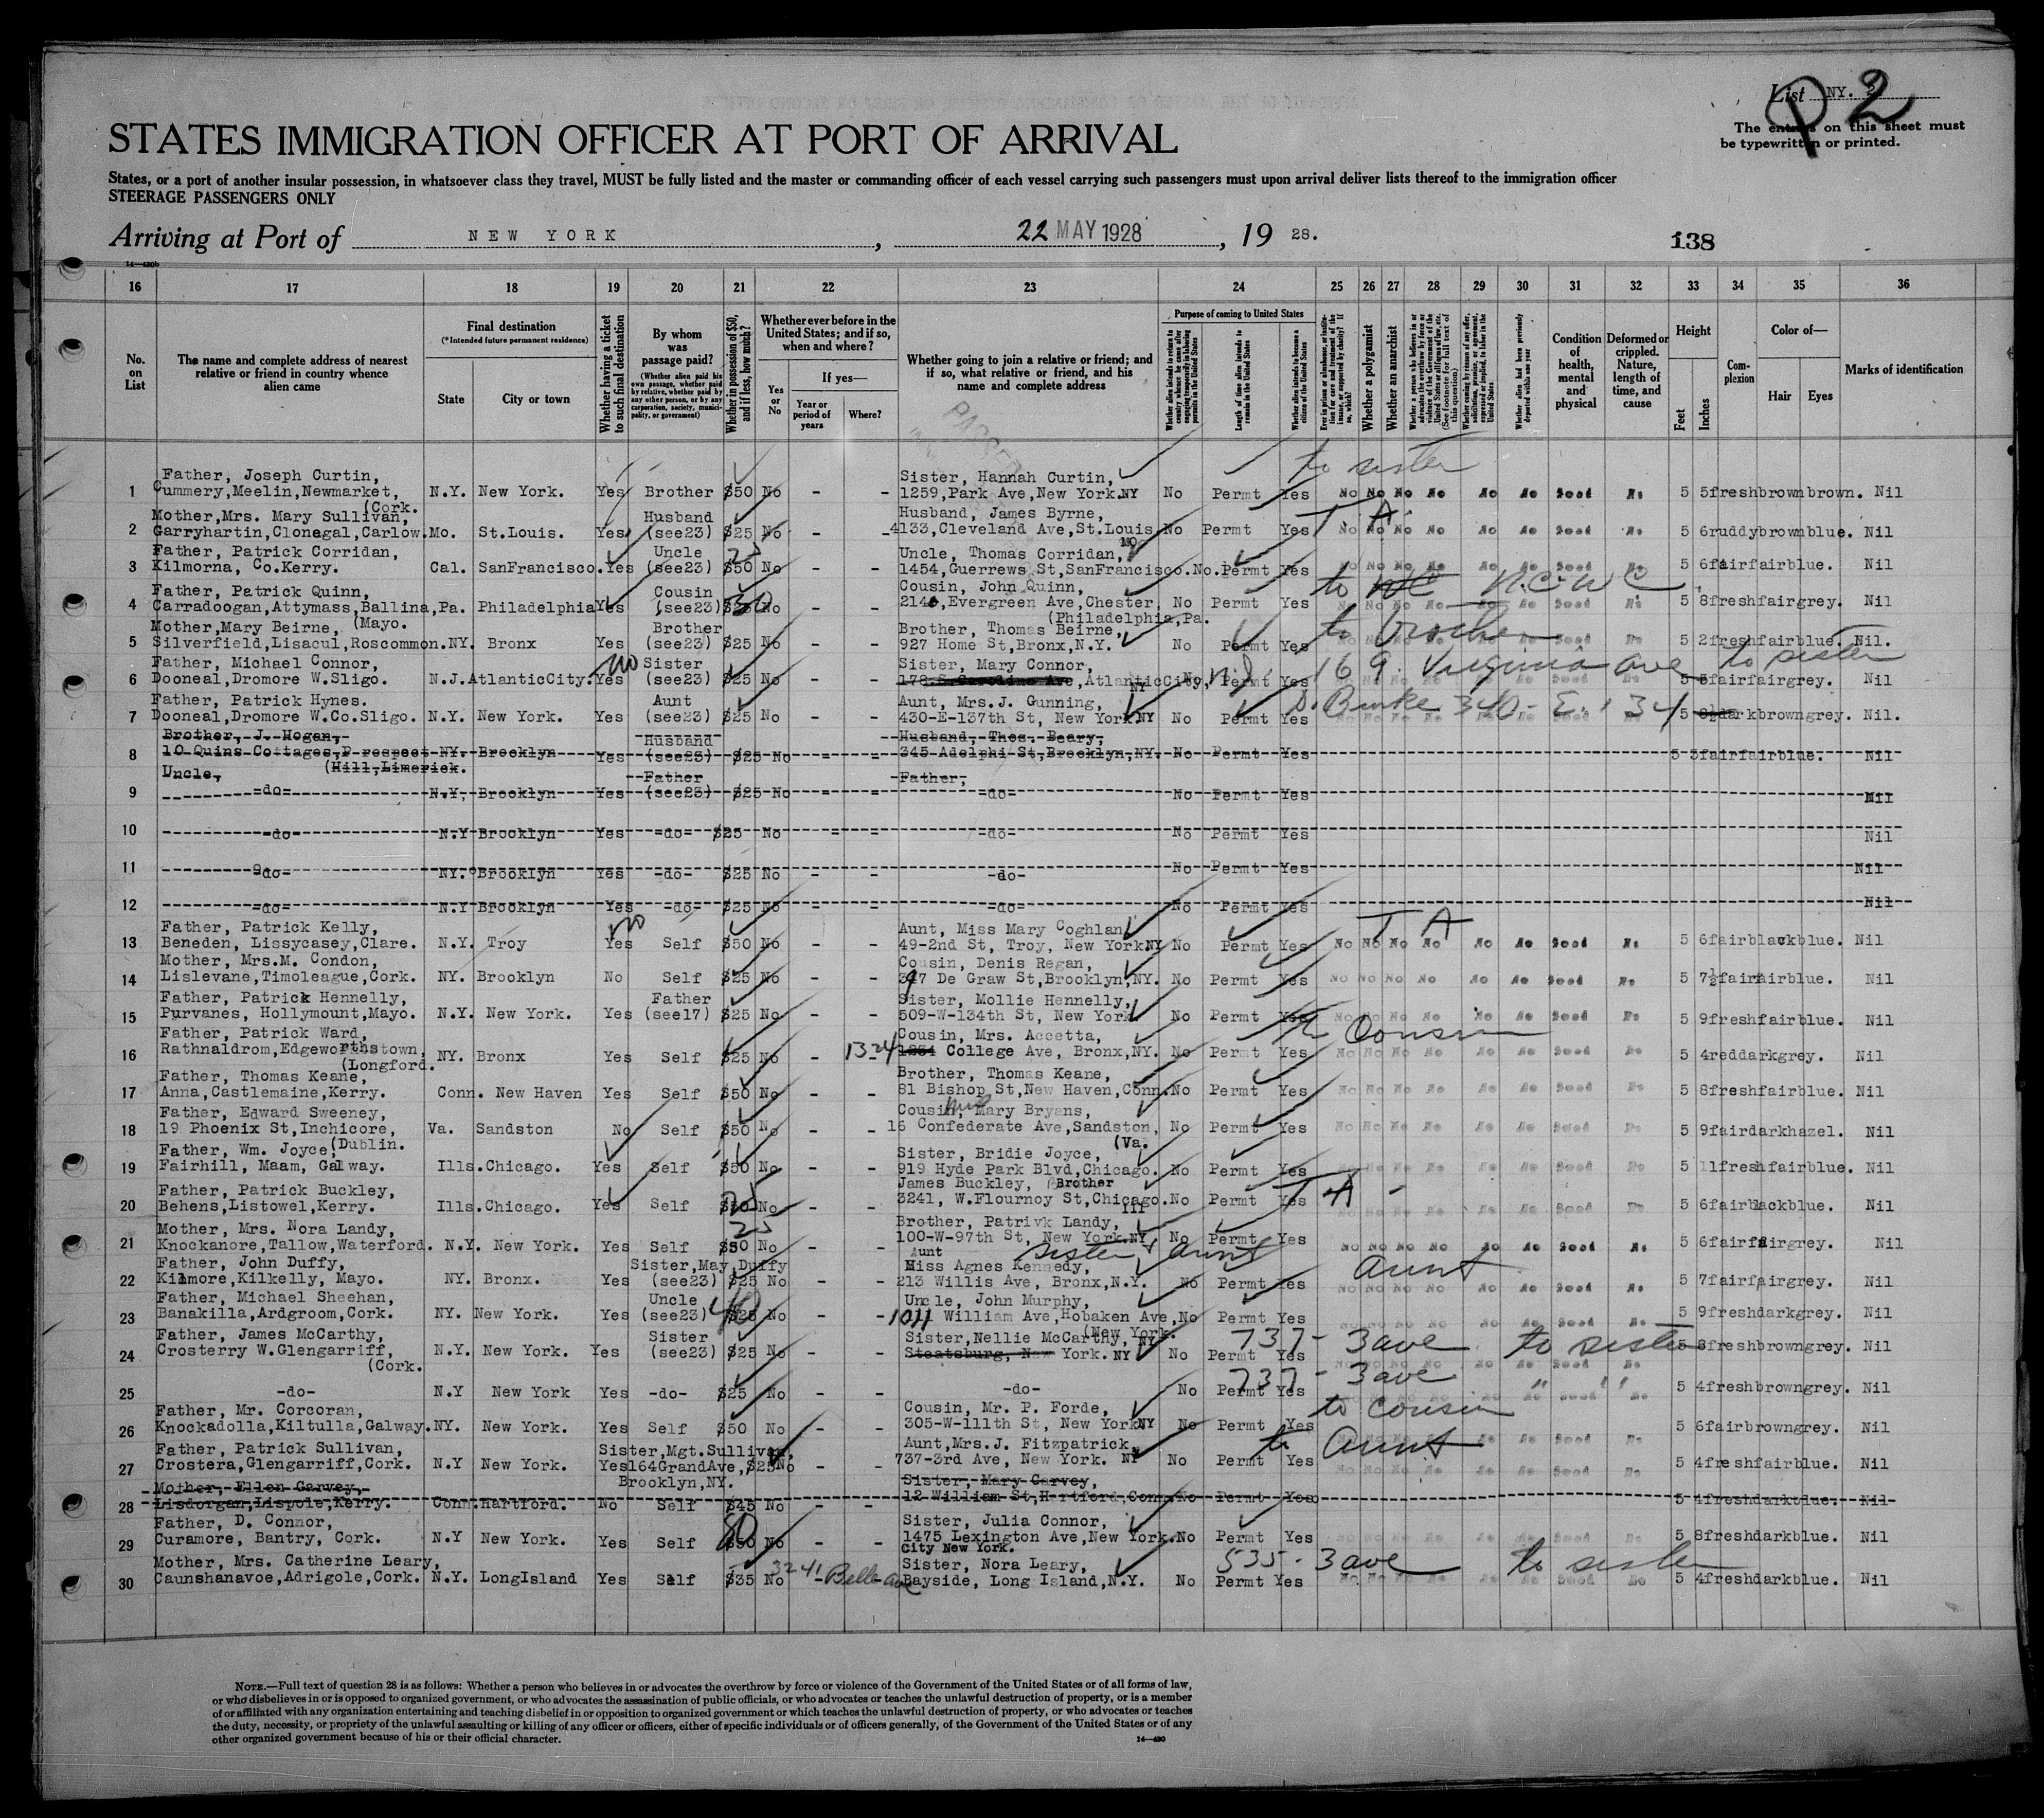 List NY. 2
P 2
The entries on this sheet must
be typewritten or printed.
STATES IMMIGRATION OFFICER AT PORT OF ARRIVAL
States, or a port of another insular possession, in whatsoever class they travel, MUST be fully listed and the master or commanding officer of each vessel carrying such passengers must upon arrival deliver lists thereof to the immigration officer
STEERAGE PASSENGERS ONLY
Arriving at Port of NEW YORK , 22 MAY 1928 , 19 28.
138
14—430b
16 17 18 19 20 21 22 23 24 25 26 27 28 29 30 31 32 33 34 35 36
No. on List
The name and complete address of nearest relative or friend in country whence alien came
Final destination
(*Intended future permanent residence)
State
City or town
Whether having a ticket to such final destination
By whom was passage paid?
(Whether alien paid his own passage, whether paid by relative, whether paid by any other person, or by any corporation, society, municipality, or government)
Whether in possession of $50, and if less, how much?
Whether ever before in the United States; and if so, when and where?
Yes or No
If yes—
Year or period of years
Where?
Whether going to join a relative or friend; and if so, what relative or friend, and his name and complete address
Purpose of coming to United States
Whether alien intends to return to country whence he came after engaging temporarily in laboring pursuits in the United States
Length of time alien intends to remain in the United States
Whether alien intends to become a citizen of the United States
Ever in prison or almshouse, or institution for care and treatment of the insane, or supported by charity? If so, which?
Whether a polygamist
Whether an anarchist
Whether a person who believes in or advocates the overthrow by force or violence of the Government of the United States or all forms of law, etc. (See footnote for full text of this question)
Whether coming by reason of any offer, solicitation, promise, or agreement, expressed or implied, to labor in the United States
Whether alien had been previously deported within one year
Condition of health, mental and physical
Deformed or crippled. Nature, length of time, and cause
Height
Feet
Inches
Complexion
Color of—
Hair
Eyes
Marks of identification
PASSED
to sister
Father, Joseph Curtin, Sister, Hannah Curtin,
1 Cummery,Meelin,Newmarket, (Cork. N.Y. New York. Yes Brother $50 No - - 1259,Park Ave,New York.NY No Permt Yes No No No No No No Good No 5 5 fresh brown brown. Nil
Mother,Mrs. Mary Sullivan, Husband Husband, James Byrne, T. A.
2 Garryhartin,Clonegal,Carlow. Mo. St.Louis. Yes (see23) $25 No - - 4133,Cleveland Ave,St.Louis, MO No Permt Yes No No No No No No Good No 5 6 ruddy brown blue. Nil
Father, Patrick Corridan, Uncle 25 Uncle, Thomas Corridan,
3 Kilmorna, Co.Kerry. Cal. SanFrancisco. Yes (see23) $50 No - - 1454,Guerrews St,SanFrancisco. No. Permt Yes No No No No No No Good No 5 6 fair fair blue. Nil
Father, Patrick Quinn, Cousin Cousin, John Quinn, to N.C.W.C.
4 Carradoogan,Attymass,Ballina, (Mayo. Pa. Philadelphia Yes (see23) 30 No 2140,Evergreen Ave,Chester, (Philadelphia,Pa. No Permt Yes No No No No No No Good No 5 8 fresh fair grey. Nil
Mother,Mary Beirne, Brother Brother, Thomas Beirne, to brother
5 Silverfield,Lisacul,Roscommon. NY. Bronx Yes (see23) $25 No - - 927 Home St,Bronx,N.Y. No Permt Yes No No No No No No Good No 5 2 fresh fair blue. Nil.
Father, Michael Connor, no Sister Sister, Mary Connor, 169. Virginia ave to sister
6 Dooneal,Dromore W.Sligo. N.J. AtlanticCity. Yes (see23) $25 No - - 178 S.Caroline Ave,AtlanticCity, No Permt Yes Good No 5 5 fair fair grey. Nil
Father, Patrick Hynes. Aunt Aunt, Mrs.J. Gunning, Burke 340 - E. 134
7 Dooneal,Dromore W.Co.Sligo. N.Y. New York. Yes (see23) $25 No - - 430-E-137th St, New York NY No Permt Yes 5 8½ dark brown grey. Nil.
Brother, J. Hogan, Husband Husband, Thos. Beary,
8 10 Quins Cottages,Prospect (Hill,Limerick. NY. Brooklyn Yes (see23) $25 No - - 345 Adelphi St,Brooklyn,NY. No Permt Yes 5 5 fair fair blue. Nil
Uncle, Father Father,
9 -do- N.Y. Brooklyn Yes (see23) $25 No - - -do- No Permt Yes Nil
10 -do- N.Y Brooklyn Yes -do- $25 No - - -do- No Permt Yes Nil
11 -do- NY. Brooklyn Yes -do- $25 No - - -do- No Permt Yes Nil
12 -do- N.Y Brooklyn Yes -do- $25 No - - -do- No Permt Yes Nil
Father, Patrick Kelly, no Aunt, Miss Mary Coghlan T A
13 Beneden, Lissycasey,Clare. N.Y. Troy Yes Self $50 No - - 49-2nd St, Troy, New York NY No Permt Yes No No No No No No Good No 5 6 fair black blue. Nil
Mother, Mrs.M. Condon, Cousin, Denis Regan,
14 Lislevane,Timoleague,Cork. NY. Brooklyn No Self $25 No - - 347 De Graw St,Brooklyn,NY. No Permt Yes No No No No No No Good No 5 7½ fair fair blue. Nil
Father, Patrick Hennelly, Father Sister, Mollie Hennelly,
15 Purvanes, Hollymount,Mayo. N.Y. New York. Yes (see17) $25 No - - 509-W-134th St, New York No Permt Yes No No No No No No Good No 5 9 fresh fair blue. Nil
Father, Patrick Ward, Cousin, Mrs. Accetta, to Cousin
16 Rathnaldrom,Edgeworthstown, (Longford. NY. Bronx Yes Self $25 No - 1324 College Ave, Bronx,NY. No Permt Yes No No No No No No Good No 5 4 red dark grey. Nil
Father, Thomas Keane, Brother, Thomas Keane,
17 Anna,Castlemaine,Kerry. Conn. New Haven Yes Self $50 No - - 81 Bishop St,New Haven,Conn. No Permt Yes No No No No No No Good No 5 8 fresh fair blue. Nil
Father, Edward Sweeney, Cousin, Mrs Mary Bryans,
18 19 Phoenix St,Inchicore, (Dublin. Va. Sandston No Self $50 No - - 16 Confederate Ave,Sandston, (Va. No Permt Yes No No No No No No Good No 5 9 fair dark hazel. Nil
Father, Wm. Joyce, Sister, Bridie Joyce,
19 Fairhill, Maam, Galway. Ills. Chicago. Yes Self $50 No - - 919 Hyde Park Blvd,Chicago. No Permt Yes No No No No No Good No 5 11 fresh fair blue. Nil
Father, Patrick Buckley, James Buckley, Brother T A -
20 Behens,Listowel,Kerry. Ills. Chicago. Yes Self No - - 3241, W.Flournoy St,Chicago. Ill No Permt Yes No No No No No Good No 5 6 fair black blue. Nil
Mother, Mrs. Nora Landy, 25 Brother, Patrivk Landy,
21 Knockanore,Tallow,Waterford. N.Y. New York. Yes Self $50 No - - 100-W-97th St, New York.NY, No Permt Yes No No No No No No Good No 5 6 fair fair grey. Nil
Father, John Duffy, Sister,May Duffy Aunt sister + aunt Miss Agnes Kennedy, aunt
22 Kilmore,Kilkelly, Mayo. NY. Bronx. Yes (see23) $25 No - - 213 Willis Ave, Bronx,N.Y. No Permt Yes No No No No No No Good No 5 7 fair fair grey. Nil
Father, Michael Sheehan, Uncle 40 Uncle, John Murphy,
23 Banakilla,Ardgroom,Cork. NY. New York. Yes (see23) $25 No - - 1011 William Ave,Hobaken Ave, (New York. No Permt Yes No No No No No No Good No 5 9 fresh dark grey. Nil
Father, James McCarthy, Sister Sister,Nellie McCarthy, NY 737 - 3 ave to sister
24 Crosterry W.Glengarriff, (Cork. N.Y. New York. Yes (see23) $25 No - - Staatsburg, New York. NY No Permt Yes No No No No No No Good No 5 8 fresh brown grey. Nil
737 - 3 ave " "
25 -do- N.Y New York Yes -do- $25 No - - -do- No Permt Yes No No Good No 5 4 fresh brown grey. Nil
Father, Mr. Corcoran, Cousin, Mr. P. Forde, to cousin
26 Knockadolla,Kiltulla,Galway. NY. New York. Yes Self $50 No - - 305-W-111th St, New York NY No Permt Yes No No Good No 5 6 fair brown grey. Nil
Father, Patrick Sullivan, Sister,Mgt.Sullivan, Aunt,Mrs.J. Fitzpatrick, to Aunt
27 Crostera,Glengarriff,Cork. N.Y New York. Yes 164GrandAve, Brooklyn,NY. $25 No - - 737-3rd Ave, New York. NY No Permt Yes No No No No No No Good No 5 4 fresh fair blue. Nil
Mother, Ellen Garvey, Sister, Mary Garvey,
28 Lisdorgan,Lispole,Kerry. Conn. Hartford. No Self $45 No - - 12 William St,Hartford,Conn. No Permt Yes 5 4 fresh dark blue. Nil
Father, D. Connor, Sister, Julia Connor,
29 Curamore, Bantry, Cork. N.Y New York. Yes Self No - - 1475 Lexington Ave,New York. City New York. No Permt Yes No No No No No No Good No 5 8 fresh dark blue. Nil
Mother, Mrs. Catherine Leary, 3241 Bell ave Sister, Nora Leary, 535 - 3 ave to sister
30 Caunshanavoe,Adrigole,Cork. N.Y. LongIsland Yes Self $35 No - - Bayside, Long Island,N.Y. No Permt Yes No No No No No No Good No 5 4 fresh dark blue. Nil
NOTE.—Full text of question 28 is as follows: Whether a person who believes in or advocates the overthrow by force or violence of the Government of the United States or of all forms of law,
or who disbelieves in or is opposed to organized government, or who advocates the assassination of public officials, or who advocates or teaches the unlawful destruction of property, or is a member
of or affiliated with any organization entertaining and teaching disbelief in or opposition to organized government or which teaches the unlawful destruction of property, or who advocates or teaches
the duty, necessity, or propriety of the unlawful assaulting or killing of any officer or officers, either of specific individuals or of officers generally, of the Government of the United States or of any
other organized government because of his or their official character.
14—430